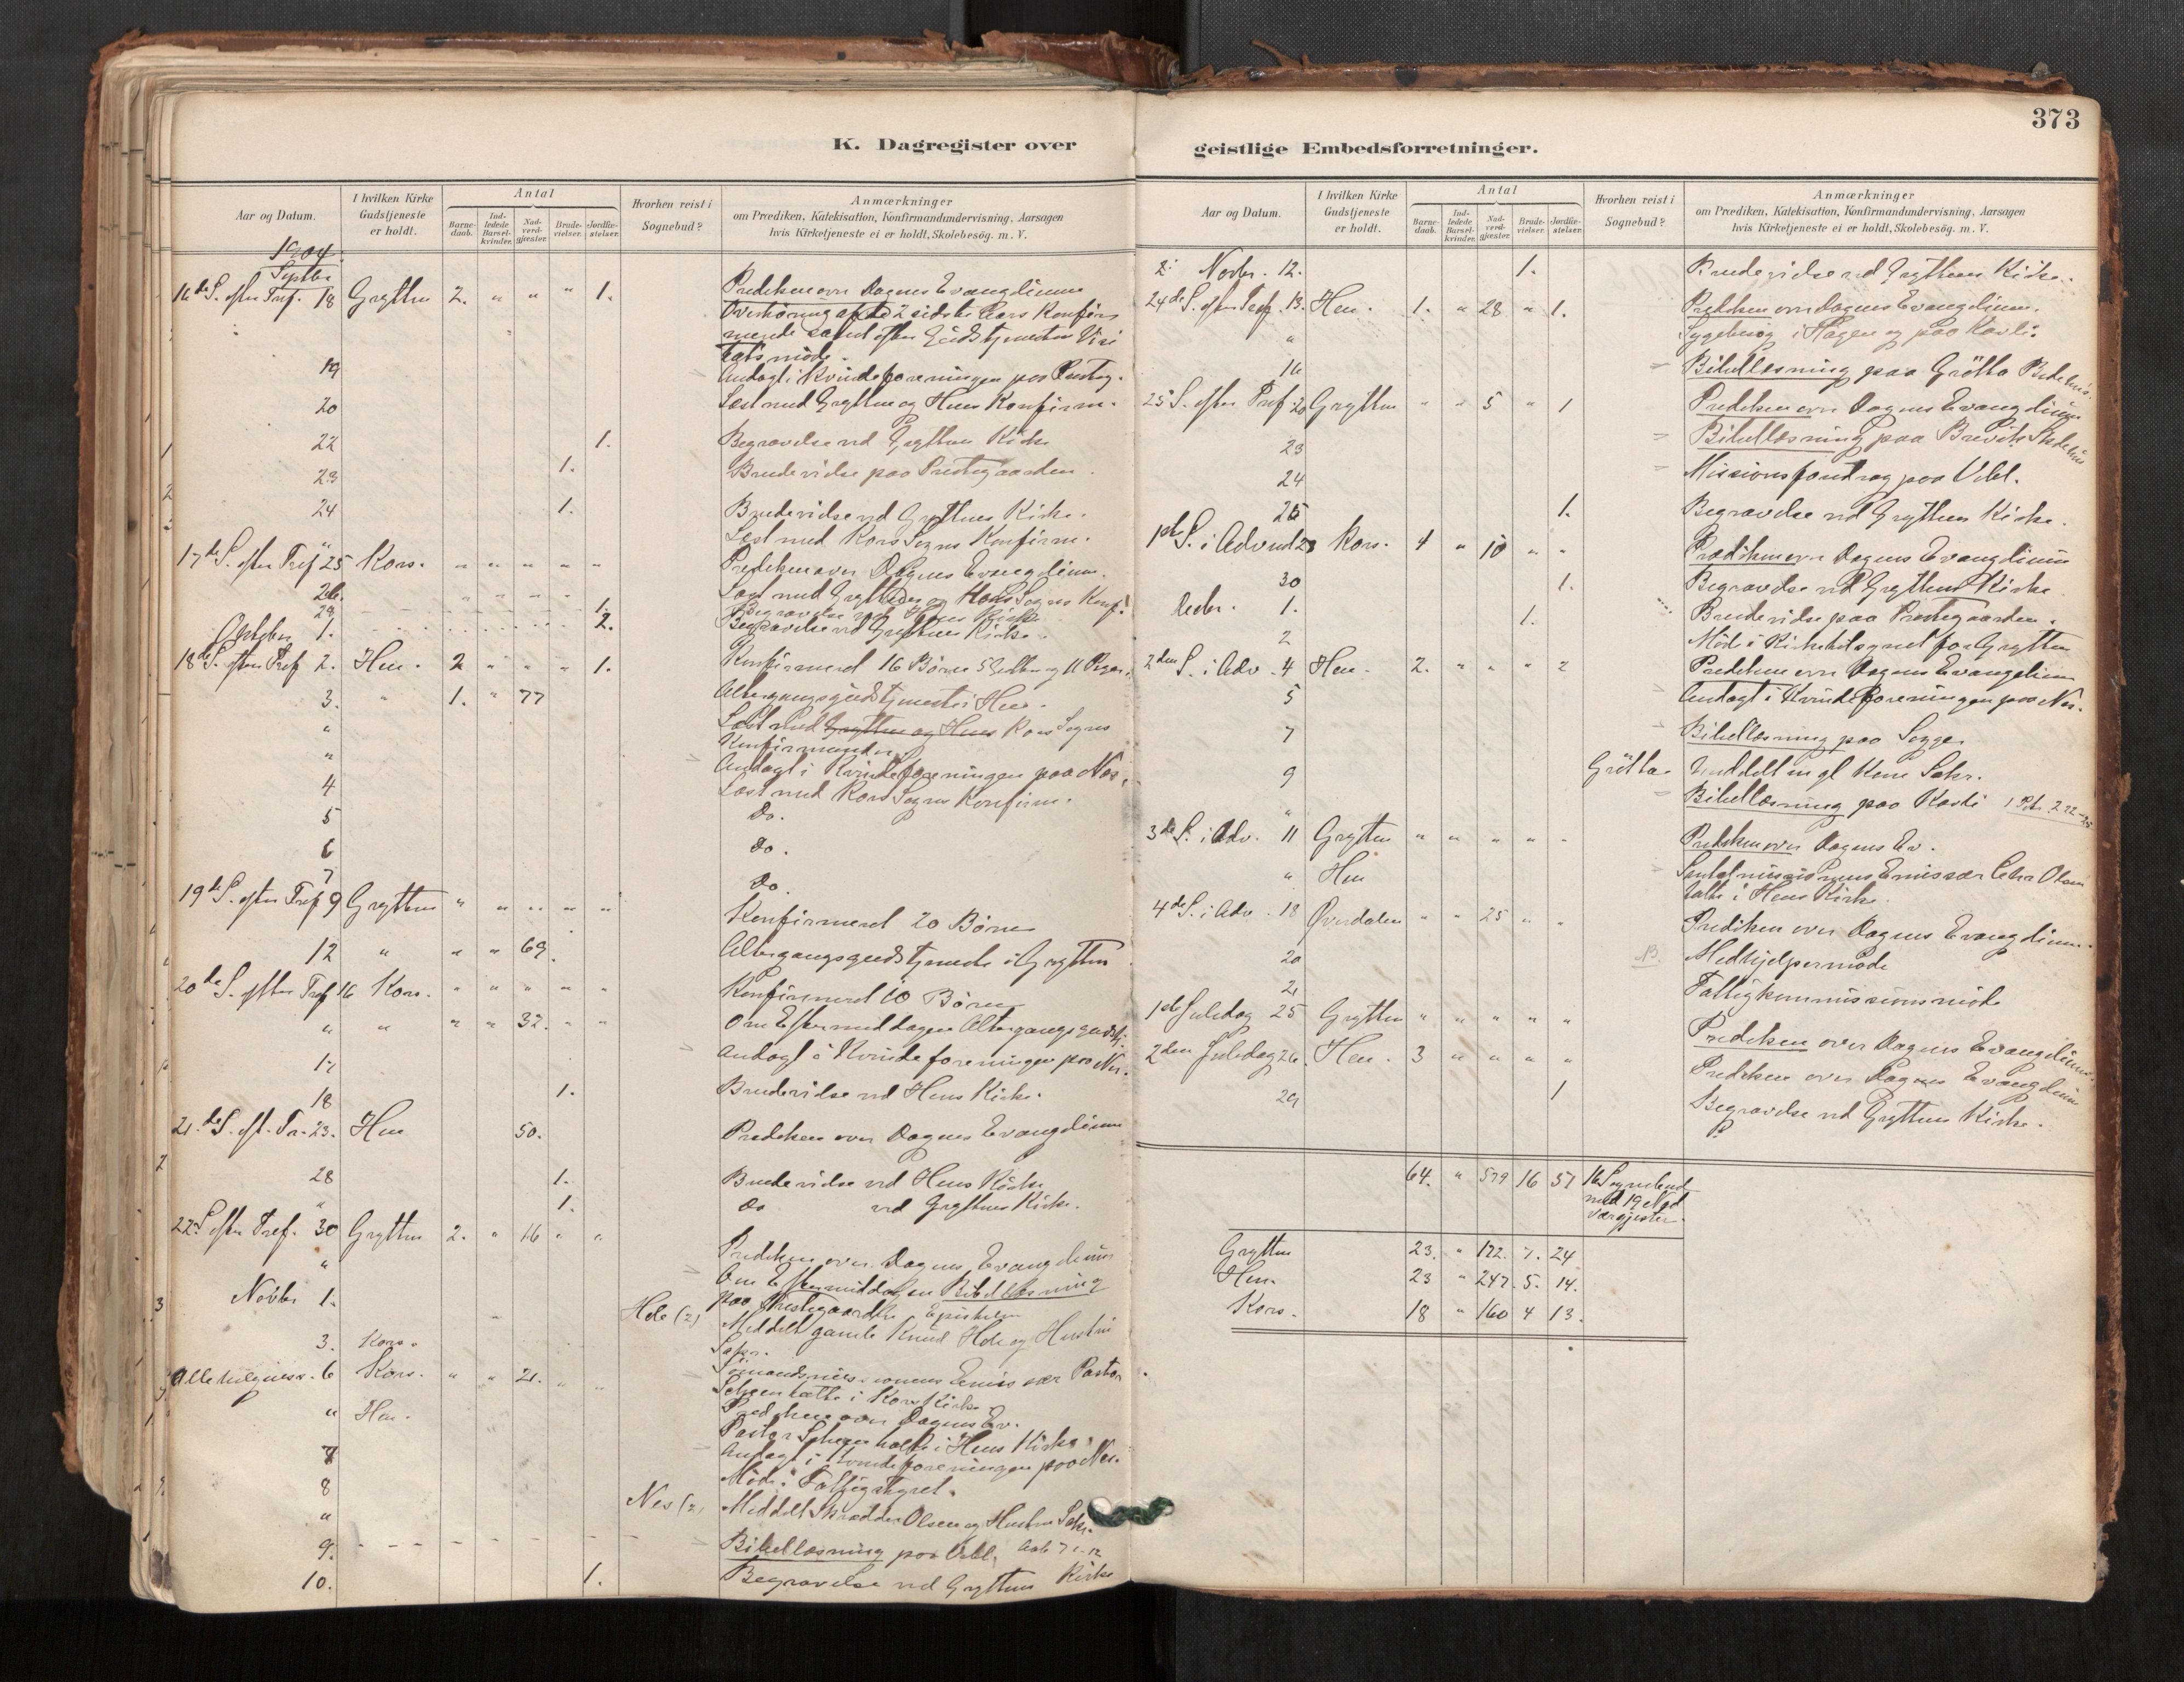 373
K. Dagregister over geistlige Embedsforretninger.
Aar og Datum. I hvilken Kirke Gudstjeneste er holdt. Antal Barne-daab. Ind-ledede Barsel-kvinder. Nad-verd-gjæster. Brude-vielser. Jordfæ-stelser. Hvorhen reist i Sognebud? Anmærkninger om Prædiken, Katekisation, Konfirmandundervisning, Aarsagen hvis Kirketjeneste ei er holdt, Skolebesög. m. V.
1904.
Septbr
16de S. efter Tref. 18 Grytten 2. " " " 1. Prediken over Dagens Evangelium
Overhöring af de 2 sidste Aars Konfir
merede samt efter Gudstjenesten Visi
tatsmöde.
19 Andagt i Kvindeforeningen paa Presteg.
20 Læst med Grytten og Hens Konfirm.
22 1. Begravelse ved Grytten Kirke
23 1. Brudevielse paa Prestegaarden.
24 1. Brudevielse ved Gryttens Kirke.
" Læst med Kors Sogns Konfirm.
17de S. efter Tref 25 Kors. " " " " " Prediken over Dagens Evangelium.
26. " " " " Læst med Gryttens og Hens Sogns Konf.
29 1. Begravelse ved Hens Kirke
Oktober 1. 2. Begravelse ved Gryttens Kirke.
18de S. efter Tref 2. Hen. 2 " " " 1. Konfirmered 16 Börn 5 Gutter og 11 Piger.
3. " 1. " 77 Altergangsgudstjeneste i Hen.
" Læst med Grytten og Hens Kors Sogns
Konfirmander.
" Andagt i Kvindeforeningen paa Nes.
4 Læst med Kors Sogns Konfirm.
5 Do.
6 Do.
7 Do.
19de S. efter Tref 9 Grytten " " " " " Konfirmered 20 Börn
12 " " " 69. Altergangsgudstjeneste i Grytten
20de S. efter Tref 16 Kors. " " " " " Konfirmered 10 Börn
" " " " 32. " " Om Eftermiddagen Altergangsgudstj.
17 Andagt i Kvindeforeningen paa Nes.
18 1. Brudevielse ved Hens Kirke.
21.de S. eft. Tr. 23. Hen 50. Prediken over Dagens Evangelium
28 1. Brudevielse ved Hens Kirke
" 1. do ved Gryttens Kirke.
22. S efter Tref. 30 Grytten 2. " 16 " " Prediken over Dagens Evangelium
" Om Eftermiddagen Bibellæsning
paa Prestegaarden
Novbr 1. Hole (2) Meddelt gamle Knud Hole og Hustru
Sakr.
3. Kors. Sömandsmissionens Emissær Pastor
Scheen talte i Kors Kirke.
Allehelgens s. 6 Kors. " " 21. " " Prediken over Dagens Ev.
" Hen. Pastor Scheen talte i Hens Kirke.
7 Andagt i Kvindeforeningen paa Nes.
8 Möde i Fattigstyret.
" Nes (2) Meddelt Skrædder Olsen og Hustru Sakr.
9. Bibellæsning paa Vebl.
10. 1. Begravelse ved Gryttens Kirke
Novbr. 12. 1. Brudevielse ved Gryttens Kirke.
24de S. efter Tref. 13. Hen. 1. " 28 " 1. Prediken over Dagens Evangelium.
" Sygebesög i Hagen og paa Kavli.
16 Bibellæsning paa Grötta Bedehus.
25 S. efter Tref. 20 Grytten " " 5 " 1 Prediken over Dagens Evangelium
23 Bibellæsning paa Brevik Skolehus
24 Missionsforedrag paa Vebl.
25 1. Begravelse ved Gryttens Kirke.
1ste S. i Advent 28 Kors. 4 " 10 " " Prædiken over Dagens Evangelium
30 1. Begravelse ved Gryttens Kirke.
Decbr. 1. 1. Brudevielse paa Prestegaarden.
2 Möde i Kirketilsynet for Grytten
2den S. i Adv. 4 Hen. 2. " " " 2 Prediken over Dagens Evangelium
5 Andagt i Kvindeforeningen paa Nes.
7 Bibellæsning paa Sogge
9 Grötta Meddelt en gl Kone Sakr.
" Bibellæsning paa Kavli 1 Pet. 2 22-25
3de S. i Adv. 11 Grytten " " " " " Prediken over Dagens Ev.
" Hen Santalmissionens Emissær Chr Olsen
talte i Hens Kirke.
4de S. i Adv. 18 Överdalen " " 25 " " Prediken over Dagens Evangelium.
20 Medhjelpermöde
21 Fattigkommissionsmöde
1ste Juledag 25 Grytten " " " " " Prediken over Dagens Evangelium.
2den Juledag 26. Hen. 3 " " " " Prediken over Dagens Evangelium
29 1 Begravelse ved Gryttens Kirke.
64. " 579 16 51 16 Sognebud
med 19 Nad
verdgjester.
Grytten 23. " 172. 7. 24
Hen. 23 " 247. 5. 14.
Kors. 18 " 160 4 13.